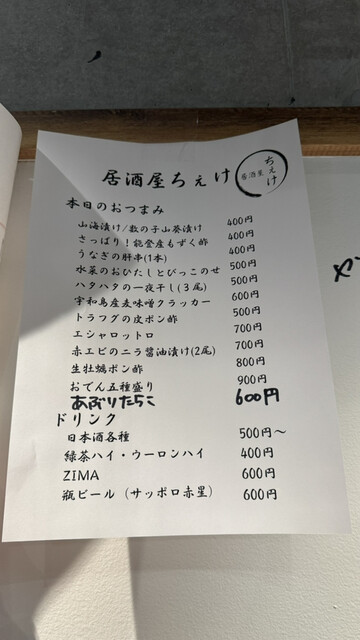 居酒屋ちぇけ
居酒屋 ちぇけ
本日のおつまみ
山海漬け/数の子山葵漬け 400円
さっぱり！能登産もずく酢 400円
うなぎの肝串(1本) 400円
水菜のおひたしとびっこのせ 500円
ハタハタの一夜干し(3尾) 500円
宇和島産麦味噌クラッカー 600円
トラフグの皮ポン酢 500円
エシャロットロ 700円
赤エビのニラ醤油漬け(2尾) 700円
生牡蠣ポン酢 800円
おでん五種盛り 900円
あぶりたらこ 600円
ドリンク
日本酒各種 500円～
緑茶ハイ・ウーロンハイ 400円
ZIMA 600円
瓶ビール（サッポロ赤星） 600円